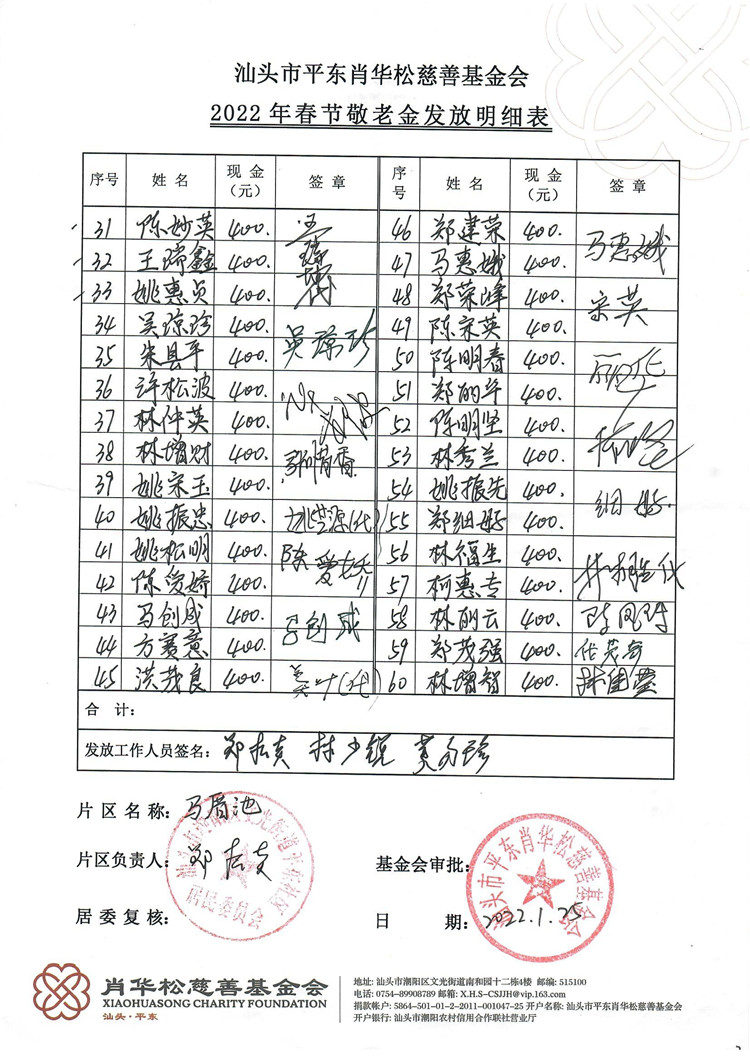 汕头市平东肖华松慈善基金会
2022年春节敬老金发放明细表
序号 姓名 现金（元） 签章 序号 姓名 现金（元） 签章
31 陈妙英 400. 王 46 郑建荣 400. 马惠娥
32 王瑞鑫 400. 47 马惠娥 400.
33 姚惠贞 400. 48 郑荣峰 400. 宋英
34 吴琼珍 400. 吴琼珍 49 陈宋英 400.
35 朱县平 400. 50 陈明春 400. 丽华
36 许松波 400. 51 郑丽华 400.
37 林仲英 400. 52 陈明坚 400.
38 林增财 400. 53 林秀兰 400.
39 姚宋玉 400. 54 姚振先 400. 细好
40 姚振忠 400. (代) 55 郑细好 400.
41 姚松明 400. 陈爱娇 56 林福生 400.
42 陈爱娇 400. 57 柯惠专 400.
43 马创成 400. 马创成 58 林丽云 400.
44 方赛意 400. 59 郑茂强 400.
45 洪茂良 400. (代) 60 林增智 400.
合 计：
发放工作人员签名： 林少锐
片区名称：马眉池
片区负责人：郑
基金会审批：
居委复核：
日 期：2022.1.25
居民委员会
汕头市平东肖华松慈善基金会
肖华松慈善基金会
XIAOHUASONG CHARITY FOUNDATION
汕头·平东
地址: 汕头市潮阳区文光街道南和园十二栋4楼 邮编: 515100
电话: 0754-89908789 邮箱: X.H.S-CSJJH@vip.163.com
捐款帐户: 5864-501-01-2-2011-001047-25 开户名称: 汕头市平东肖华松慈善基金会
开户银行: 汕头市潮阳农村信用合作联社营业厅